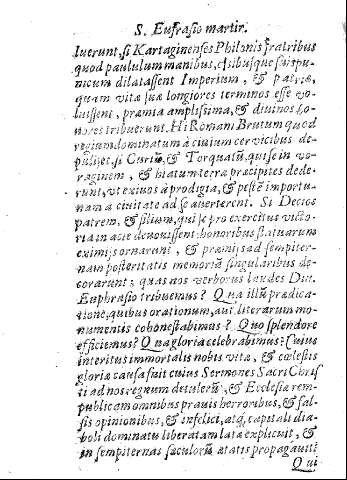 S. Eufrasio martir.
luerunt, si Kartaginenses Philenis fratribus
quod paululum manibus, & suis
nicum dilatassent Imperium, & patriæ,
quam vitæ suæ longiores terminos esse vo-
luissent, præmia amplissima, & diuinos ho-
nores tribuerunt. Hi Romani Brutum quod
regium dominatum à ciuium ceruicibus de-
pulisset, si Curtiũ, & Torquatũ, qui se in vo-
raginem, & hiatum terræ præcipites dede-
runt, vt eximos à prodigia, & pestẽ importu-
nam a ciuitate ad se auerterent. Si Decios
patrem, & filium, qui se pro exercitus victo-
ria in acie deuouissent: honoribus statuarum
eximijs ornarunt, & præmijs ad sempiter-
nam posteritatis memoriã singularibus de-
corarunt; quas nos verborũ laudes Diu.
Euphrasio tribuemus? Qua illũ prædica-
tione, quibus orationum, aut literarum mo-
numentis cohonestabimus? Quo splendore
efficiemus? Qua gloria celebrabimus? Cuius
interitus immortalis nobis vitæ, & cœlestis
gloriæ causa fuit cuius Sermones Sacri Chris
ti ad nos regnum detulerũt, & Ecclesiæ rem-
publicam omnibus prauis herroribus, & fal-
sis opinionibus, & infelici, atq; capitali dia-
boli dominatu liberatam latè explicuit, &
in sempiternas sæculorũ ætatis propagauit:
Qui